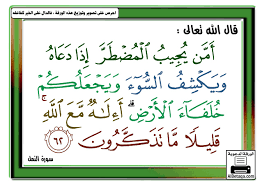 أحرص على تصوير وتوزيع هذه الورقة ، فالدال على الخير كفاعله
قال الله تعالى :
أَمَّن يُجِيبُ الْمُضْطَرَّ إِذَا دَعَاهُ
وَيَكْشِفُ السُّوءَ وَيَجْعَلُكُمْ
خُلَفَاءَ الْأَرْضِ ۗ أَءِلَٰهٌ مَّعَ اللَّهِ ۚ
قَلِيلًا مَّا تَذَكَّرُونَ ٦٢
سورة النمل